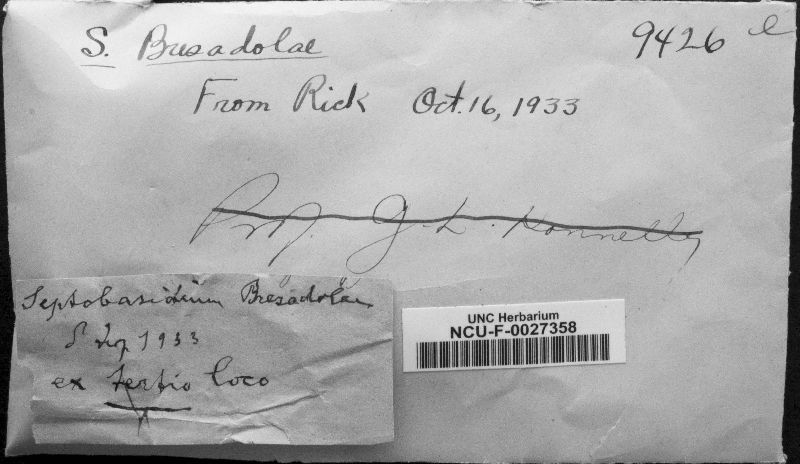 S. Bresadolae
9426 e
From Rick Oct. 16, 1933
Prof. J. L. Konnelly
Septobasidium Bresadolae
S. Lop 1933
ex tertio loco
UNC Herbarium
NCU-F-0027358